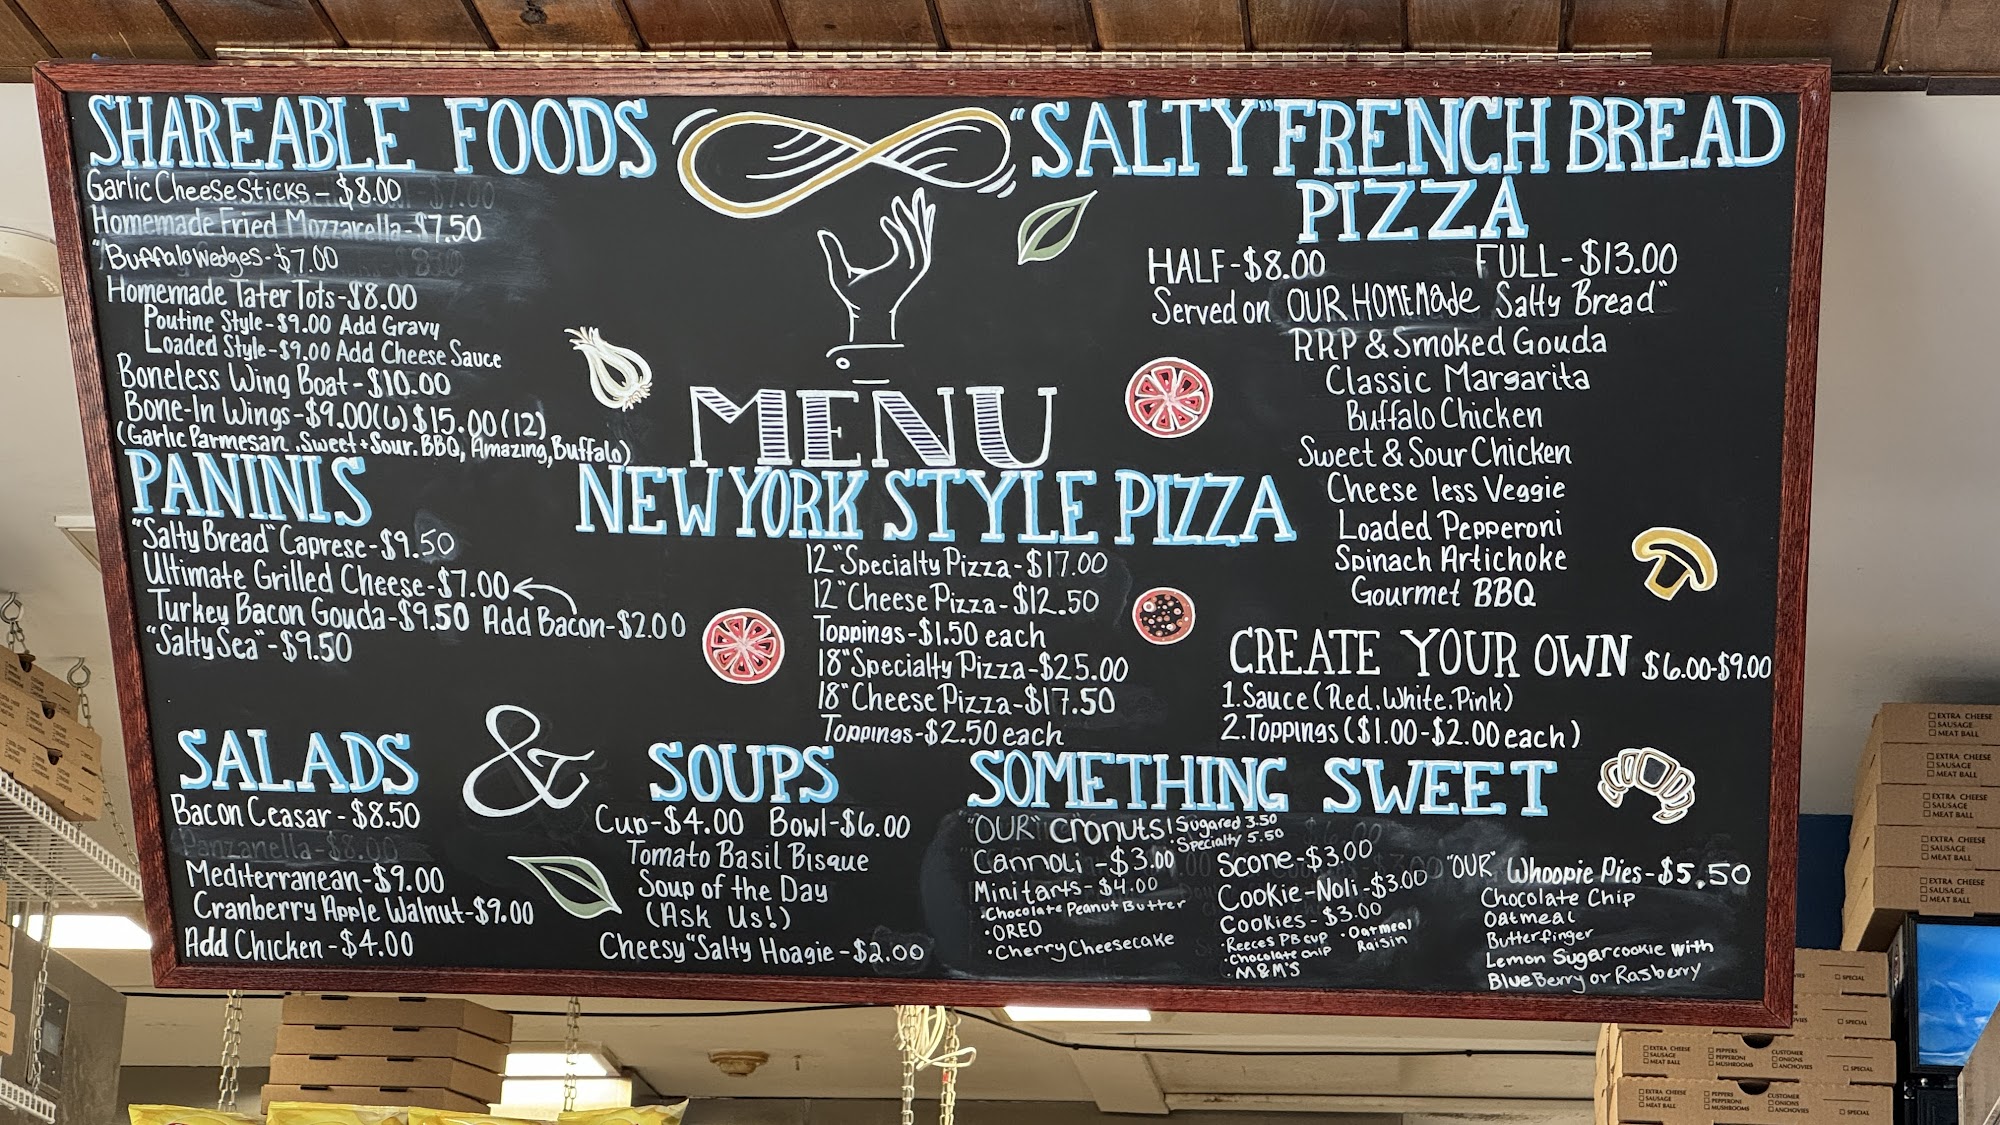 SHAREABLE FOODS
Garlic Cheese Sticks - $8.00
Homemade Fried Mozzarella - $7.50
"Buffalo Wedges - $7.00
Homemade Tater Tots - $8.00
Poutine Style - $9.00 Add Gravy
Loaded Style - $9.00 Add Cheese Sauce
Boneless Wing Boat - $10.00
Bone-In Wings - $9.00(6) $15.00(12)
(Garlic Parmesan, Sweet + Sour, BBQ, Amazing, Buffalo)
PANINIS
"Salty Bread" Caprese - $9.50
Ultimate Grilled Cheese - $7.00
Turkey Bacon Gouda - $9.50 Add Bacon - $2.00
"Salty Sea" - $9.50
SALADS
Bacon Ceasar - $8.50
Panzanella - $8.00
Mediterranean - $9.00
Cranberry Apple Walnut - $9.00
Add Chicken - $4.00
&
MENU
NEW YORK STYLE PIZZA
12" Specialty Pizza - $17.00
12" Cheese Pizza - $12.50
Toppings - $1.50 each
18" Specialty Pizza - $25.00
18" Cheese Pizza - $17.50
Toppings - $2.50 each
SOUPS
Cup - $4.00 Bowl - $6.00
Tomato Basil Bisque
Soup of the Day
(Ask Us!)
Cheesy "Salty Hoagie - $2.00
"SALTY" FRENCH BREAD
PIZZA
HALF - $8.00 FULL - $13.00
Served on OUR HOMEMade Salty Bread"
RRP & Smoked Gouda
Classic Margarita
Buffalo Chicken
Sweet & Sour Chicken
Cheese less Veggie
Loaded Pepperoni
Spinach Artichoke
Gourmet BBQ
CREATE YOUR OWN $6.00-$9.00
1. Sauce (Red, White, Pink)
2. Toppings ($1.00 - $2.00 each)
SOMETHING SWEET
"OUR" cronuts!
Sugared 3.50
· Specialty 5.50
Cannoli - $3.00
Mini tarts - $4.00
· Chocolate Peanut Butter
· OREO
· Cherry Cheesecake
Scone - $3.00
Cookie-Noli - $3.00
Cookies - $3.00
· Reeces PB cup
· Oatmeal Raisin
· Chocolate chip
· M&M'S
"OUR" Whoopie Pies - $5.50
Chocolate Chip
Oatmeal
Butterfinger
Lemon Sugarcookie with
Blue Berry or Rasberry
EXTRA CHEESE
SAUSAGE
MEAT BALL
EXTRA CHEESE
SAUSAGE
MEAT BALL
EXTRA CHEESE
SAUSAGE
MEAT BALL
EXTRA CHEESE
SAUSAGE
MEAT BALL
EXTRA CHEESE
SAUSAGE
MEAT BALL
SPECIAL
EXTRA CHEESE PEPPERS CUSTOMER
SAUSAGE PEPPERONI ONIONS
MEAT BALL MUSHROOMS ANCHOVIES SPECIAL
EXTRA CHEESE PEPPERS CUSTOMER
SAUSAGE PEPPERONI ONIONS
MEAT BALL MUSHROOMS ANCHOVIES SPECIAL